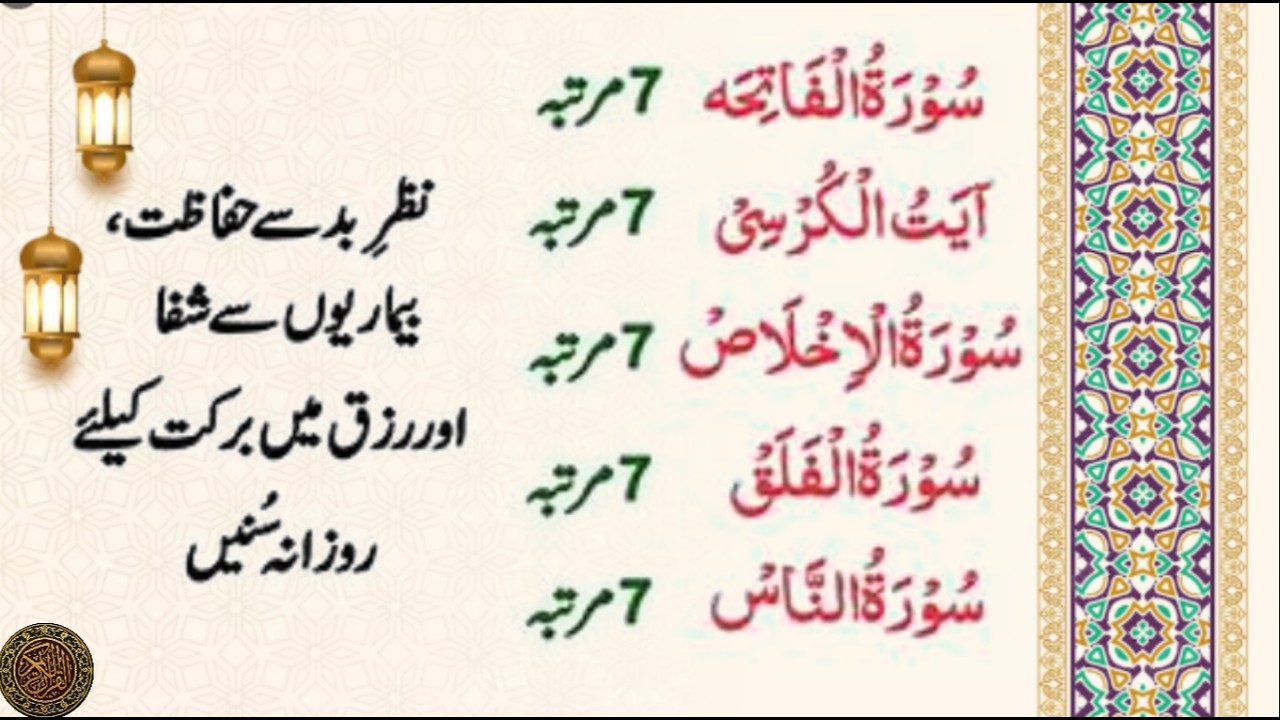 سُوْرَةُالْفَاتِحَه 7 مرتبہ
آیَتُ الْکُرْسِیْ 7 مرتبہ
سُوْرَةُالْاِخْلَاصْ 7 مرتبہ
سُوْرَةُالْفَلَقْ 7 مرتبہ
سُوْرَةُالنَّاسْ 7 مرتبہ
نظرِ بد سے حفاظت،
بیماریوں سے شفا
اور رزق میں برکت کیلئے
روزانہ سُنیں